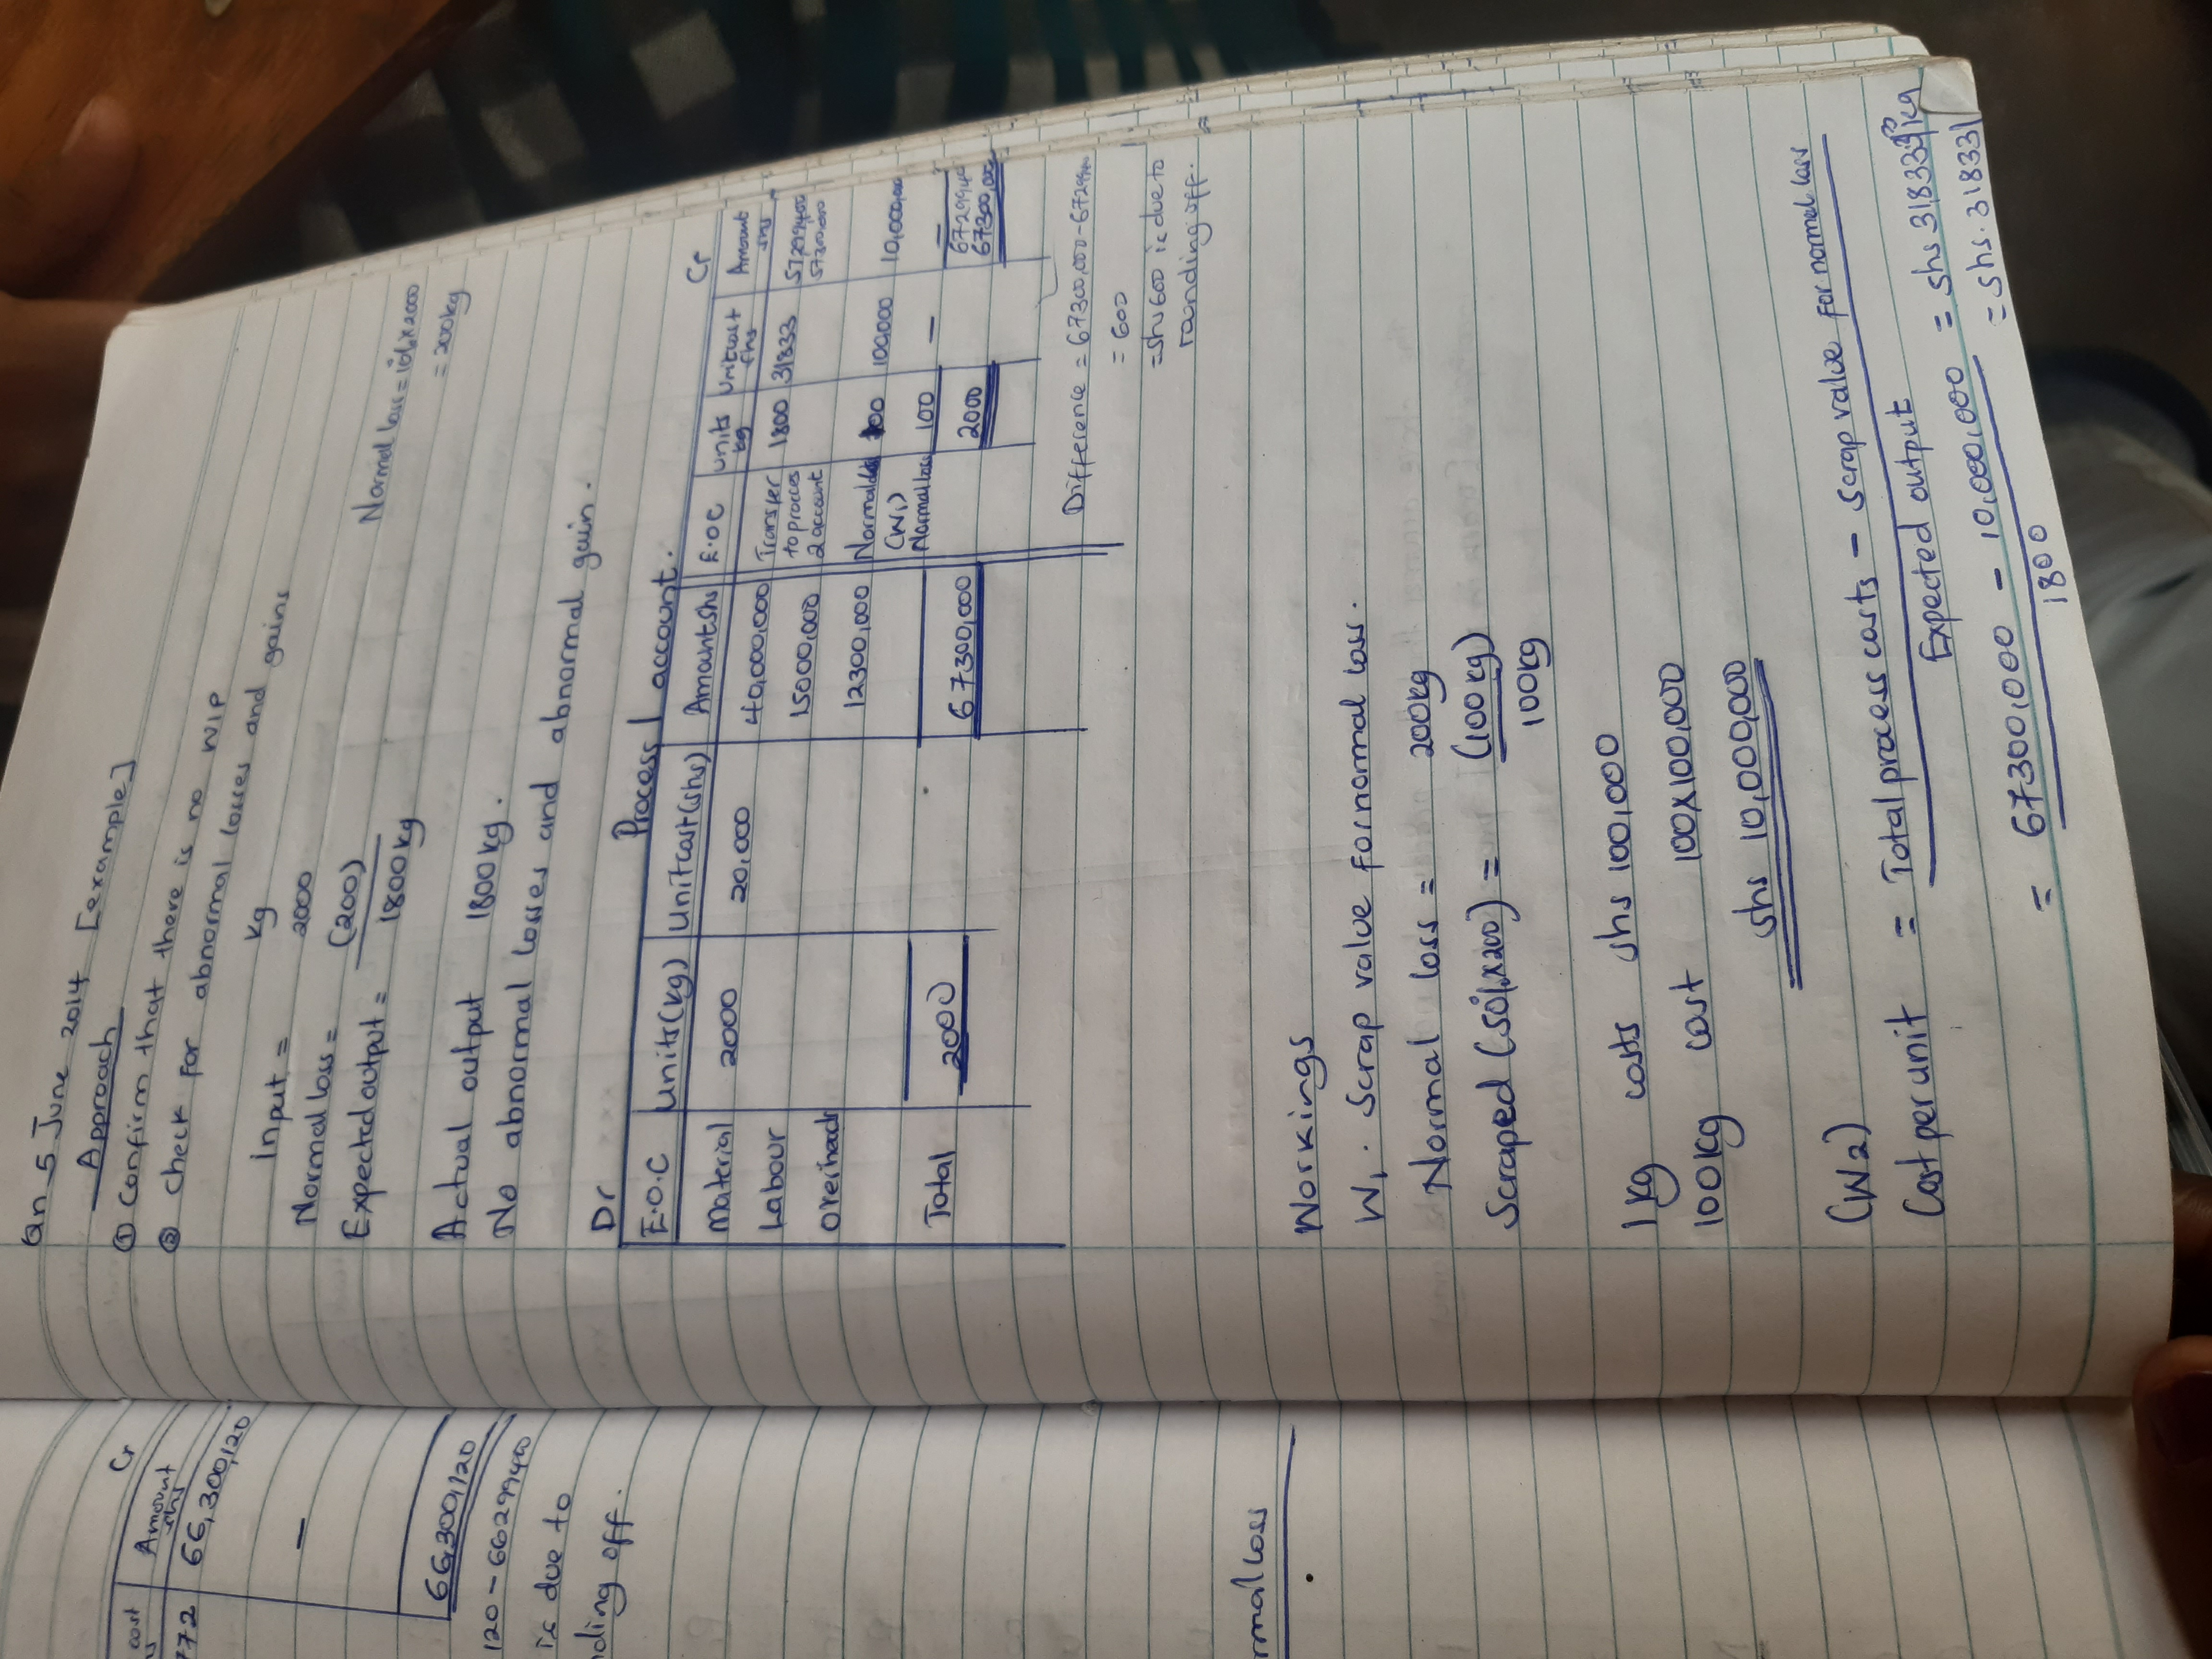 Qn 5 June 2014 [example]
Approach
① Confirm that there is no WIP
② check for abnormal losses and gains
kg
Input = 2000
Normal loss = (200)
Expected output = 1800kg
Normal loss = 10%x2000
= 200kg
Actual output 1800kg.
No abnormal losses and abnormal gain.
Dr Process 1 account. Cr
E.O.C Units(kg) Unitcost(shs) Amountshs E.O.C Units kg Unitcost shs Amount shs
Material 2000 20,000 40,000,000 Transfer to process 2 account 1800 31833 57299400
57300,000
Labour 15000,000
Overheads 12300,000 Normal loss (W1) 100 100,000 10,000,000
Normal loss 100 – –
67299400
Total 2000 67300,000 2000 67300,000
Difference = 67300,000 - 67299400
= 600
= shs 600 is due to
rounding off.
Workings
W1. Scrap value for nomal loss.
Normal loss = 200kg
Scraped (50%x200) = (100kg)
100kg
1kg costs shs 100,000
100kg cost 100x100,000
shs 10,000,000
(W2)
Cost per unit = Total process costs - scrap value for normal loss
Expected output
= 67300,000 - 10,000,000 = shs 31833.3/kg
1800
= shs. 31833/
Cr
cost Amount shs
772 66,300,120
–
66,300,120
120 - 66299400
is due to
nding off.
rmal loss